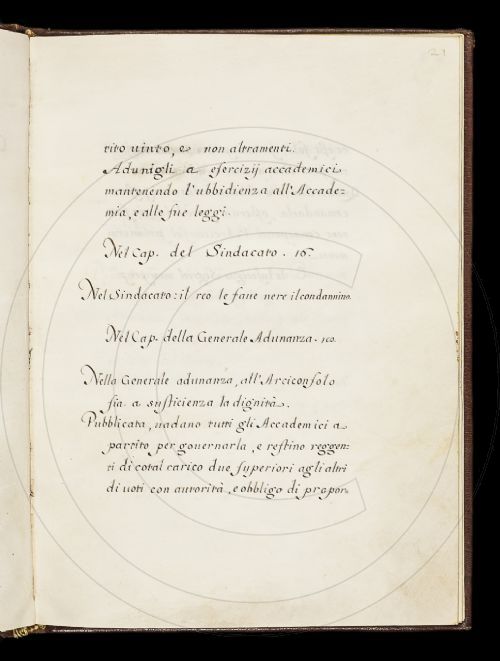 21
rito uinto, e non altramenti.
Adunigli a esercizij accademici
mantenendo l'ubbidienza all'Accade-
mia, e alle sue leggi.
Nel Cap. del Sindacato. 16.
Nel Sindacato: il reo le faue nere il condannino.
Nel Cap. della Generale Adunanza.
Nella Generale adunanza, all'Arciconsolo
sia a sufficienza la dignità.
Pubblicata, uadano tutti gli Accademici a
partito per gouernarla, e restino reggen-
ti di cotal carico due superiori agli altri
di uoti con autorità, e obbligo di propor-